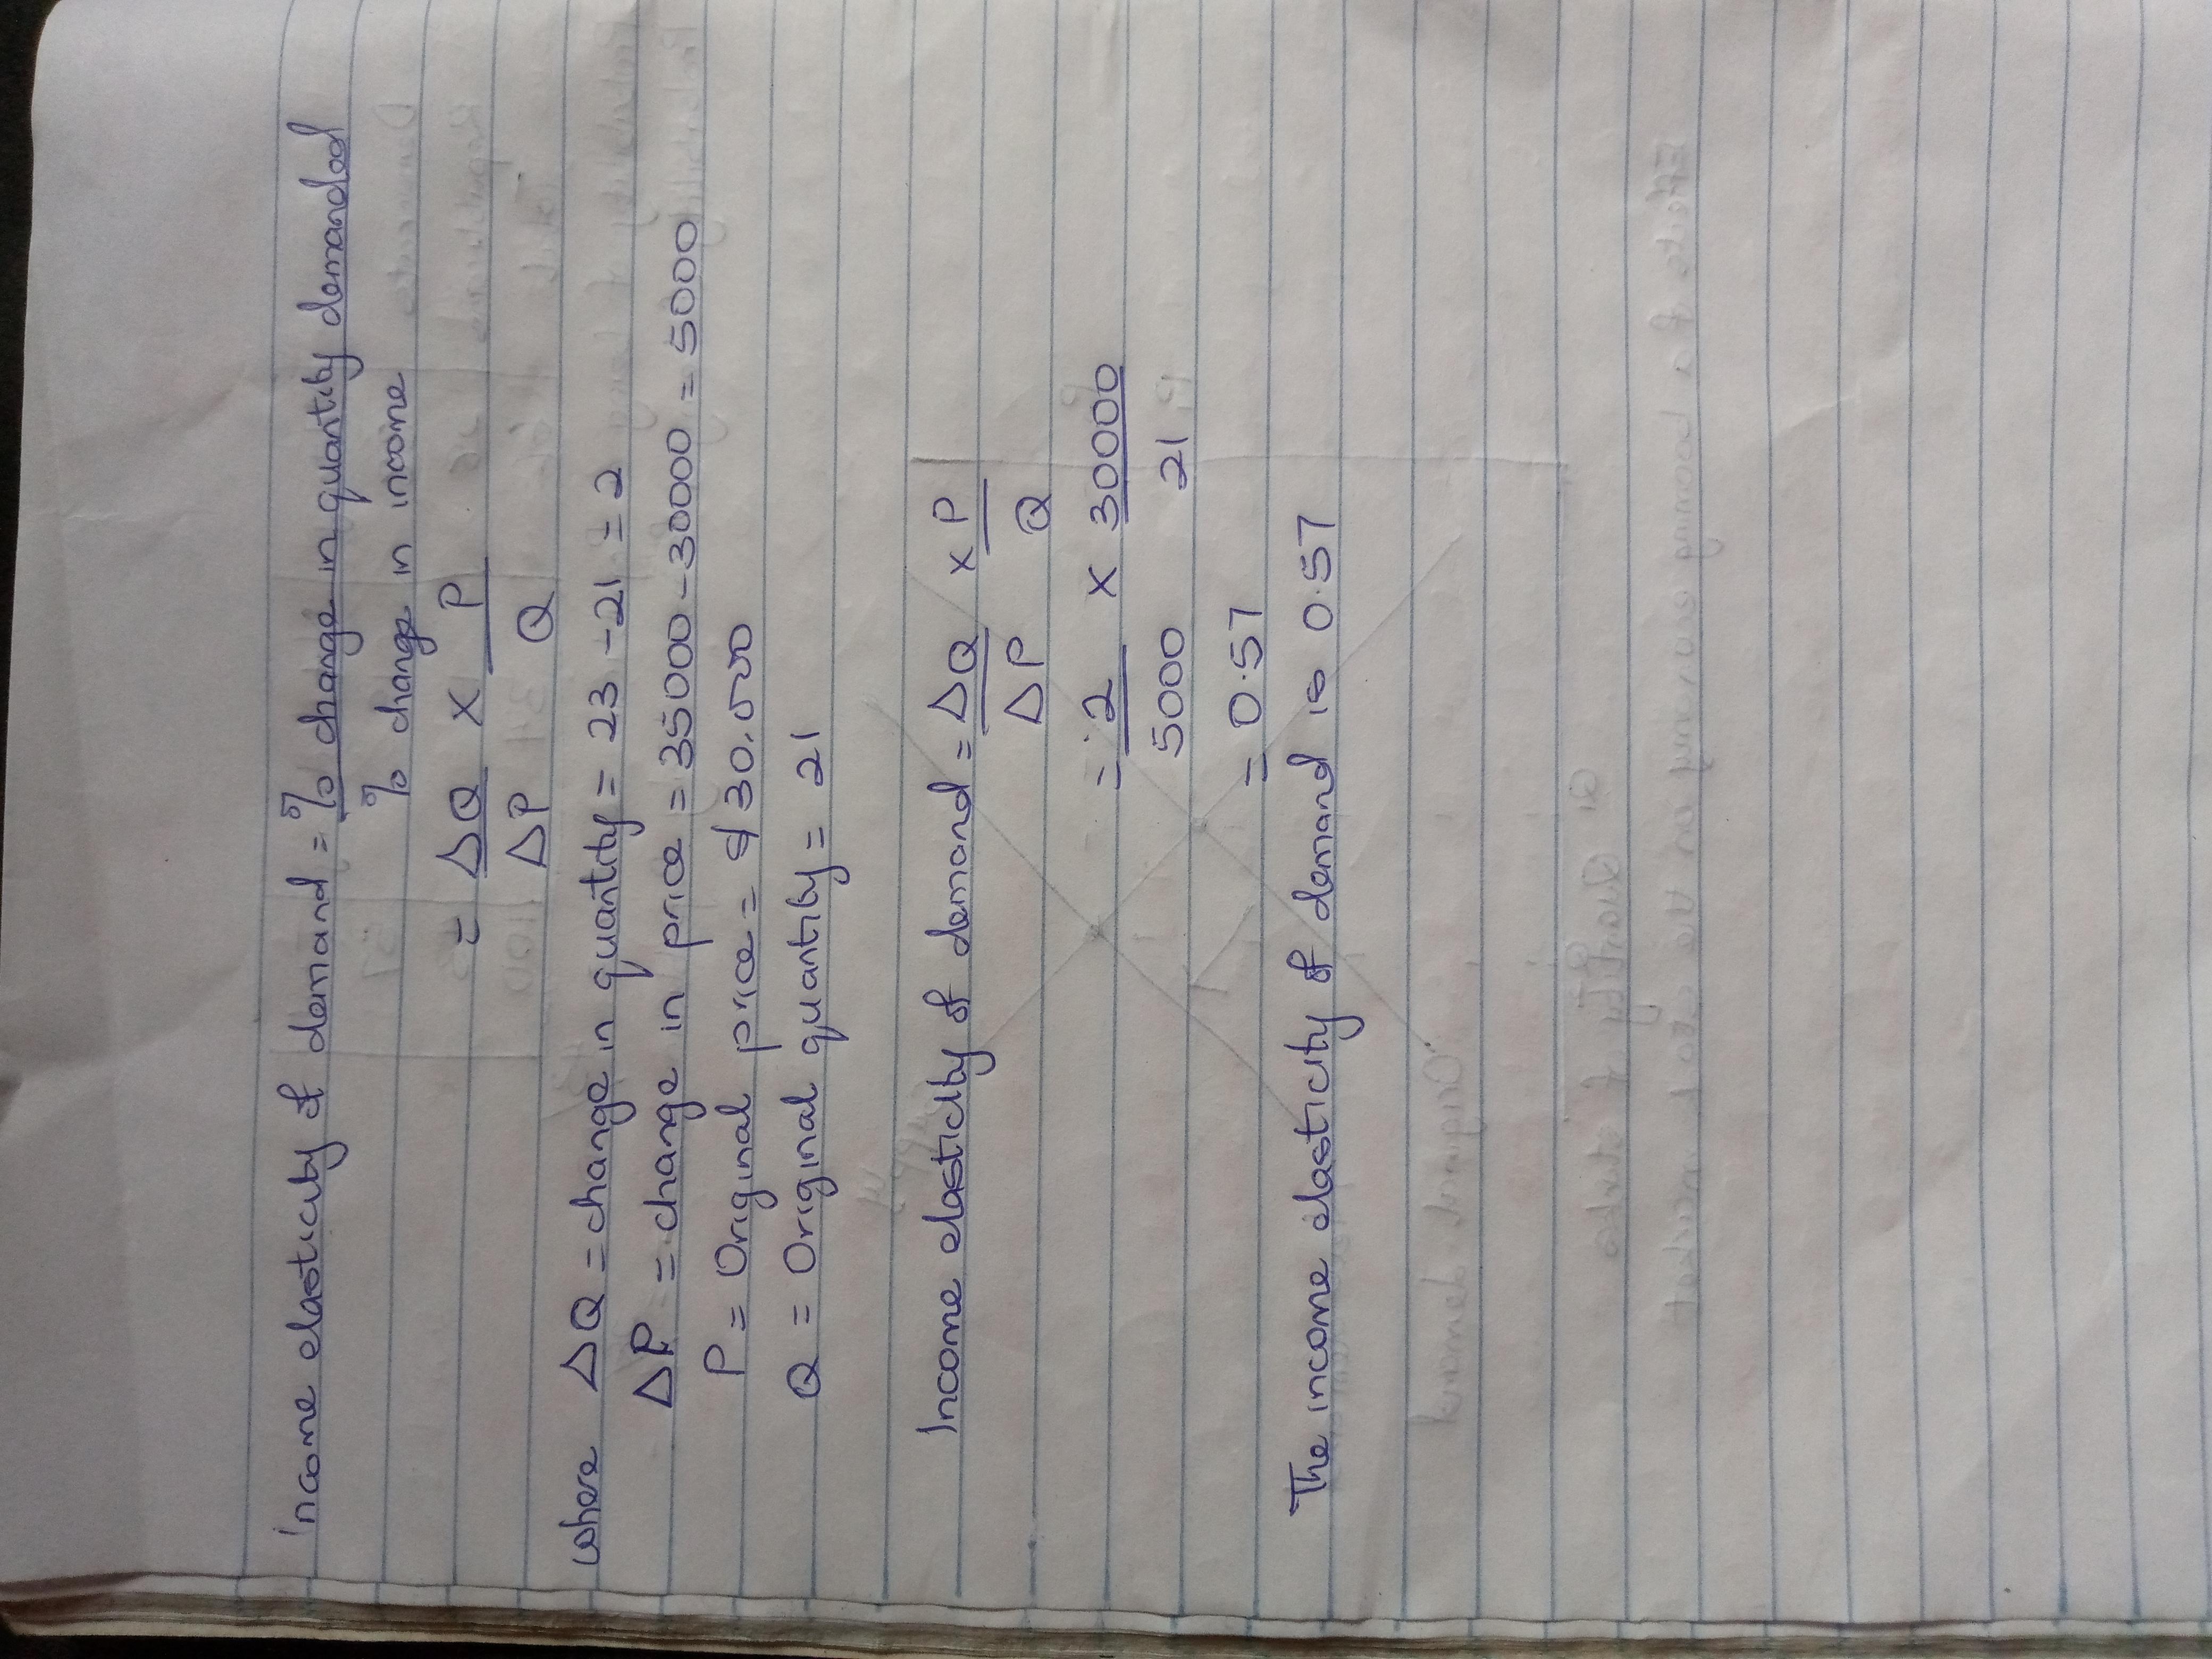 Income elasticity of demand = % change in quantity demanded
% change in income
= ΔQ x P
ΔP Q
where ΔQ = change in quantity = 23 - 21 = 2
ΔP = change in price = 35000 - 30000 = 5000
P = Original price = $30,000
Q = Original quantity = 21
Income elasticity of demand = ΔQ x P
ΔP Q
= 2 x 30000
5000 21
= 0.57
The income elasticity of demand is 0.57